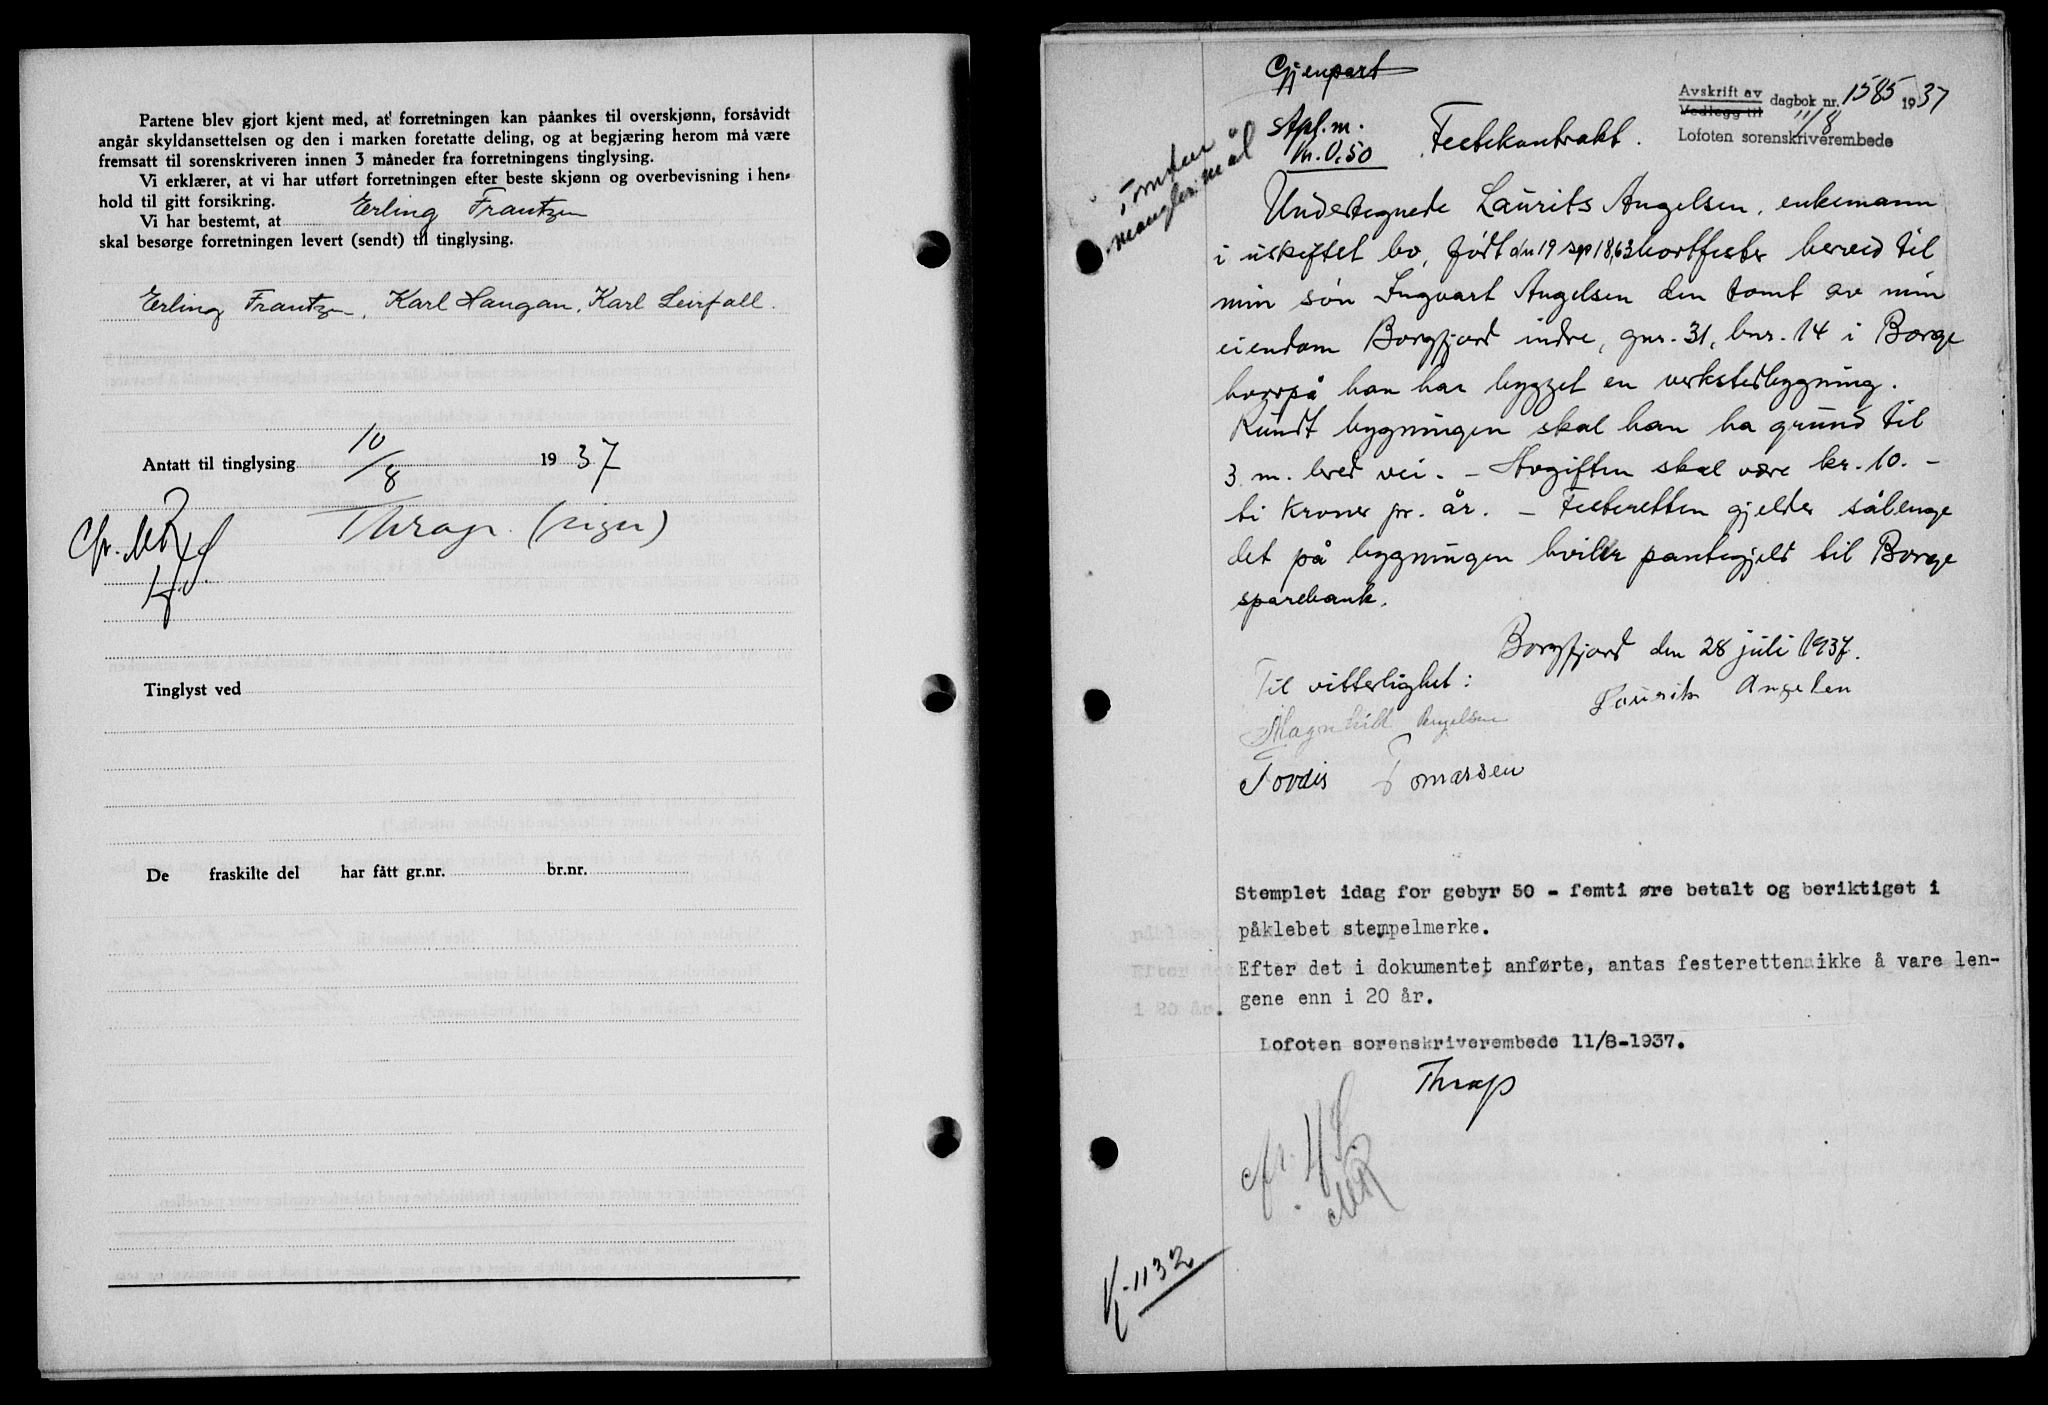 Partene blev gjort kjent med, at forretningen kan påankes til overskjønn, forsåvidt
angår skyldansettelsen og den i marken foretatte deling, og at begjæring herom må være
fremsatt til sorenskriveren innen 3 måneder fra forretningens tinglysing.
Vi erklærer, at vi har utført forretningen efter beste skjønn og overbevisning i hen-
hold til gitt forsikring.
Vi har bestemt, at Erling Frantzen
skal besørge forretningen levert (sendt) til tinglysing.
Erling Frantzen, Karl Haugan, Karl Leirfall.
Antatt til tinglysing 10/8 1937
Thrap (sign)
Tinglyst ved
De fraskilte del har fått gr.nr. br.nr.
Gjenpart
Avskrift av
Vedlegg til
dagbok nr. 1585 1937
11/8
Lofoten sorenskriverembede
Stpl.m.
kr. 0,50
Tomten
mangler mål
Festekontrakt.
Undertegnede Laurits Angelsen, enkemann
i uskiftet bo, født den 19 sep 1863 bortfester herved til
min søn Ingvart Angelsen den tomt av min
eiendom Borgfjord indre, gnr. 31, bnr. 14 i Borge
hvorpå han har bygget en verkstedbygning.
Rundt bygningen skal han ha grund til
3 m. bred vei. - Avgiften skal være kr. 10. -
ti kroner pr. år. - Festeretten gjelder sålenge
det på bygningen hviler pantegjeld til Borge
sparebank.
Borgfjord den 28 juli 1937.
Til vitterlighet:
Laurits Angelsen
Magnhild Angelsen
Tordis Tomassen
Stemplet idag for gebyr 50 - femti øre betalt og beriktiget i
påklebet stempelmerke.
Efter det i dokumentet anførte, antas festeretten ikke å vare len-
gene enn i 20 år.
Lofoten sorenskriverembede 11/8-1937.
Thrap
K-1132